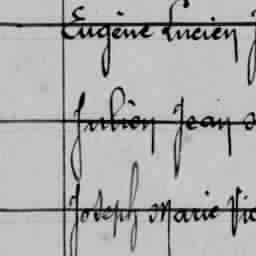 Eugène Lucien
Julien Jean
Joseph Marie Vic